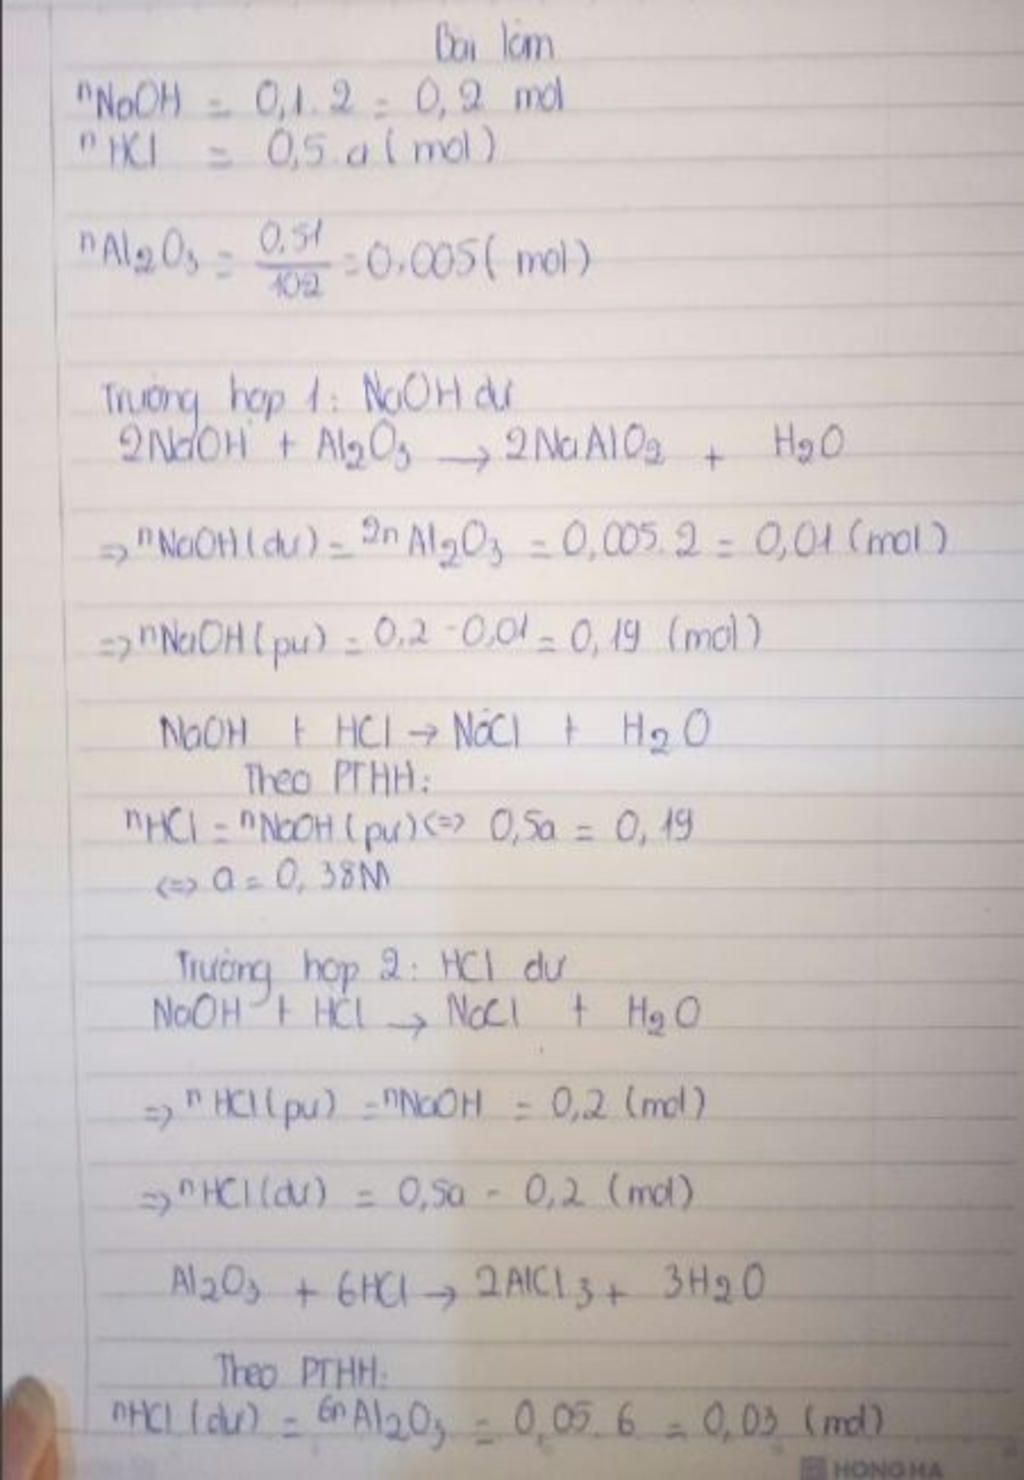 Bài làm
nNaOH = 0,1.2 = 0,2 mol
nHCl = 0,5.a (mol)
nAl2O3 = 0.51/102 = 0.005 (mol)
Trường hợp 1: NaOH dư
2NaOH + Al2O3 → 2NaAlO2 + H2O
=> nNaOH(dư) = 2nAl2O3 = 0,005.2 = 0,01 (mol)
=> nNaOH(pư) = 0,2 - 0,01 = 0,19 (mol)
NaOH + HCl → NaCl + H2O
Theo PTHH:
nHCl = nNaOH(pư) <=> 0,5a = 0,19
<=> a = 0,38M
Trường hợp 2: HCl dư
NaOH + HCl → NaCl + H2O
=> nHCl(pư) = nNaOH = 0,2 (mol)
=> nHCl(dư) = 0,5a - 0,2 (mol)
Al2O3 + 6HCl → 2AlCl3 + 3H2O
Theo PTHH:
nHCl(dư) = 6nAl2O3 = 0,05.6 = 0,03 (mol)
HONG HA